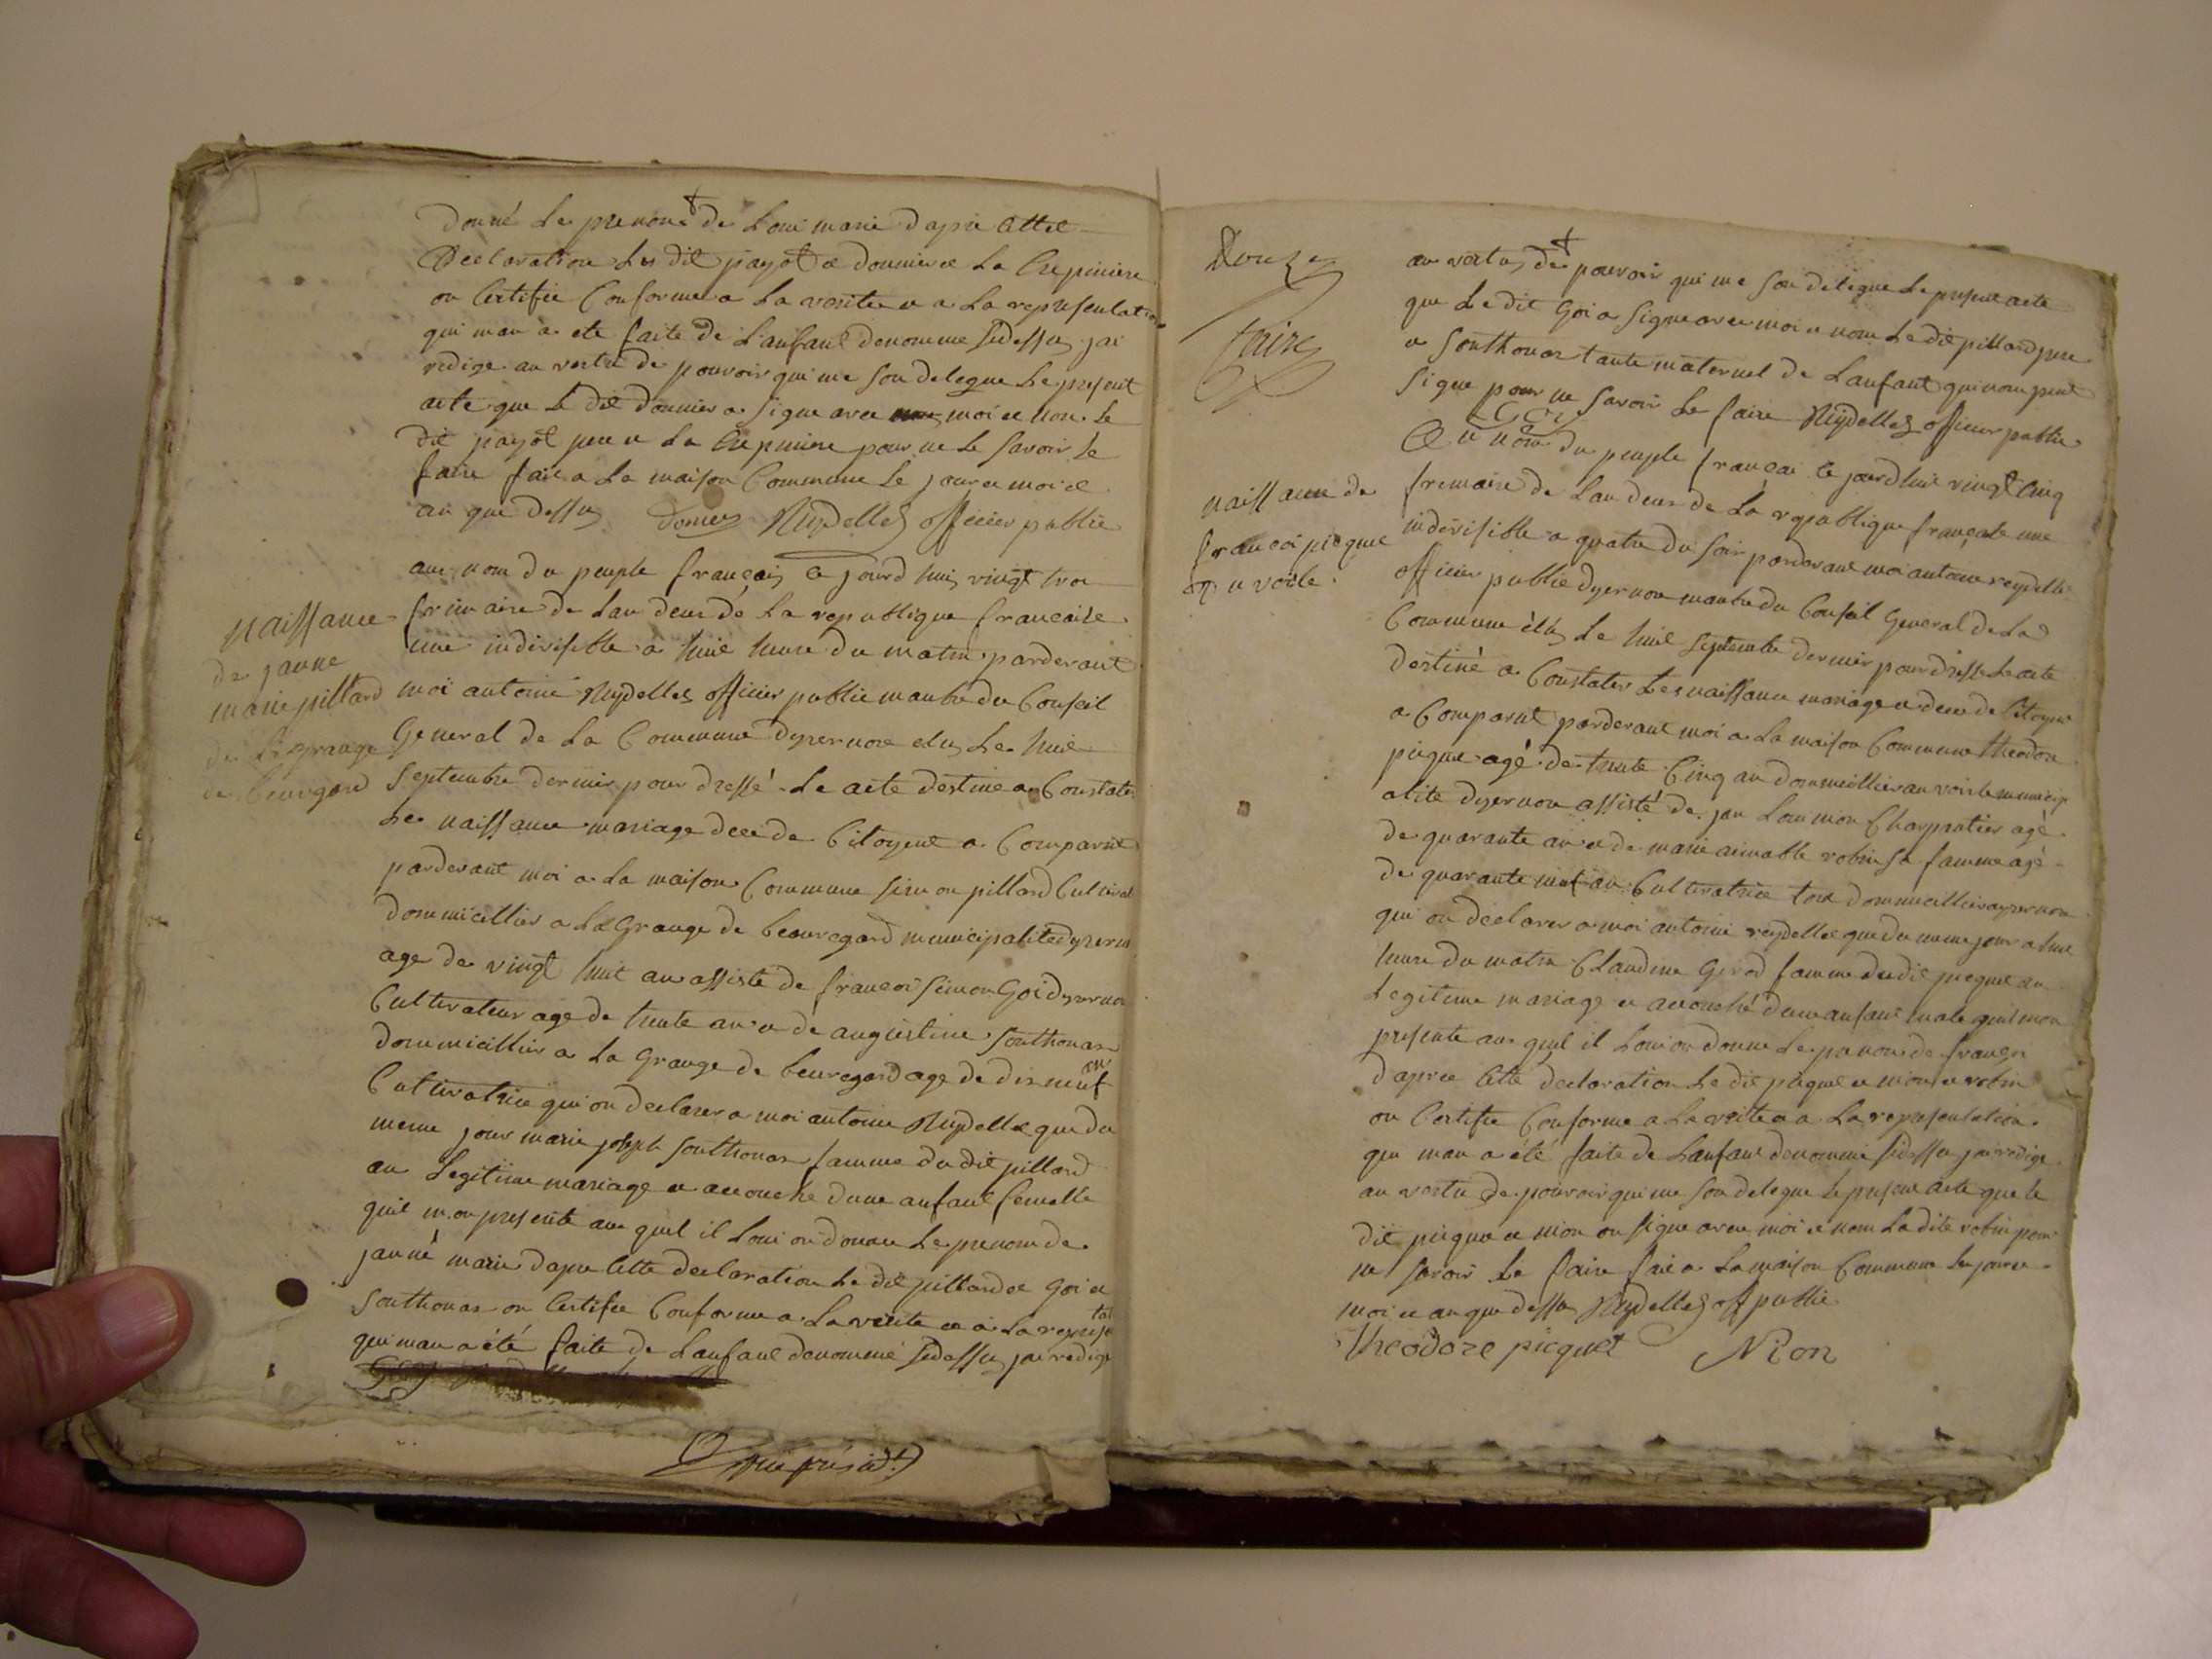 donné Le prenons de Loui marie dapré Cette
Declaration Les dit payot et dounier et La Crepiniere
on Certifie Conforme a La verite e a La representation
qui man a ete faite de L'anfant denomme sidessu jai
redige an vertu de pouvoir qui me son delegue Le present
acte que Le dit dounier a signe avec moi e non le
dit payot pere e La Crepiniere pour ne Le savoir le
faire fait a La maison Commune le jour e moi e
an que dessu Reydellet officier public
au nom du peuple français ce jourd hui vingt troi
naissance
de janne
marie pillard
de La grange
de beuregard
frimaire de Lan deux de La republique francaise
une indivisible a huit heure du matin pardevant
moi antoine Reydellet officier public manbre du Conseil
General de La Commune dyzernore elu Le huit
Septembre dernier pour dressé Le acte destine a Constater
Les naissance mariage dece de Citoyent a Comparut
pardevant moi a La maison Commune simon pillard Cultivat
dommicillier a La Grange de beauregard municipalite dyzern
age de vingt huit an assisté de francoi simon Goi dyzernon
Cultivateur age de trente an e de augustine Southonax
dommicillier a La Grange de beuregard age de dix neuf an
Cultivatrice qui on declarer a moi antoine Reydellet que du
meme jour marie joseph Southonax famme du dit pillard
an Legitime mariage e accouche dune anfant femelle
quil m on presente au quel il Loui on donne Le prenom de
janne marie dapre Cette declaration Le dit pillard e Goi e
Southonax on Certifie Conforme a La verite e a La represe tat
qui man a été faite de Lanfant denommé sidessu jai redige
Douze
an vertu de pouvoir qui me son delegue Le present acte
que Le dit Goi a signe avec moi e nom Le dit pillard pere
e Southonax tante maternel de Lanfant qui nom peut
signe pour ne savoir Le faire Reydellet officier public
Au nom du peuple francai Ce jourdhui vingt Cinq
naissance de
francoi picquet
au voile
frimaire de Lan deux de La republique française une
indivisible a quatre du soir pardevant moi antoine reydellet
officier public dyzernon manbre du Conseil General de La
Commune élu Le huit Septembre dernier pour dresse Le acte
destiné a Constater Les naissance mariage e dece de Citoyent
a Comparut pardevant moi a La maison Commune theodore
picquet agé de trente Cinq an dommicillier au voile municip
alite dyzernon assisté de jan Loui nion Charpantier agé
de quarante an e de marie aimable robin sa famme agé
de quarante neuf an Cultivatrice tout dommicillier a yzernon
qui on declarer a moi antoine reydellet que du meme jour a une
heure du matin Claudine Girod famme du dit picquet an
Legitime mariage e accouché dune anfant male quil mon
presente au quel il Loui on donne Le prenom de francoi
dapree Cette declaration Le dit picquet e nion e robin
on Certifie Conforme a La verite e a La representation
qui man a été faite de Lanfant denomme sidessu jai redige
an vertu de pouvoir qui me son delegue Le present acte que le
dit picquet e nion on signe avec moi e nom La dite robin pour
ne savoir Le faire fait a La maison Commune Le jour e
moi e an que dessu Reydellet off public
theodore picquet Nion